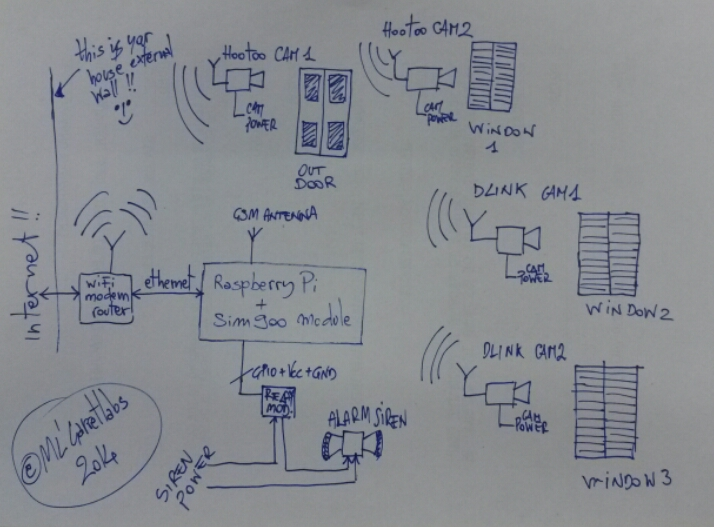 this is your
house external
wall !!
HooToo CAM 1
CAM
POWER
OUT
DOOR
HooToo CAM2
CAM
POWER
WINDOW
1
DLINK CAM1
CAM
POWER
WINDOW2
DLINK CAM2
CAM
POWER
WINDOW3
Internet !!
WiFi
modem
router
ethernet
GSM ANTENNA
Raspberry Pi
+
Sim900 Module
GPIO+Vcc+GND
RELAY
MOD.
ALARM SIREN
SIREN
POWER
2014